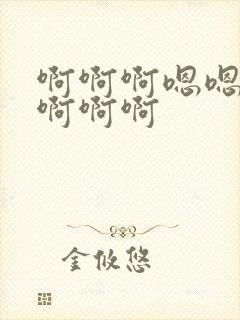 啊啊啊嗯嗯
啊啊啊
金攸悠